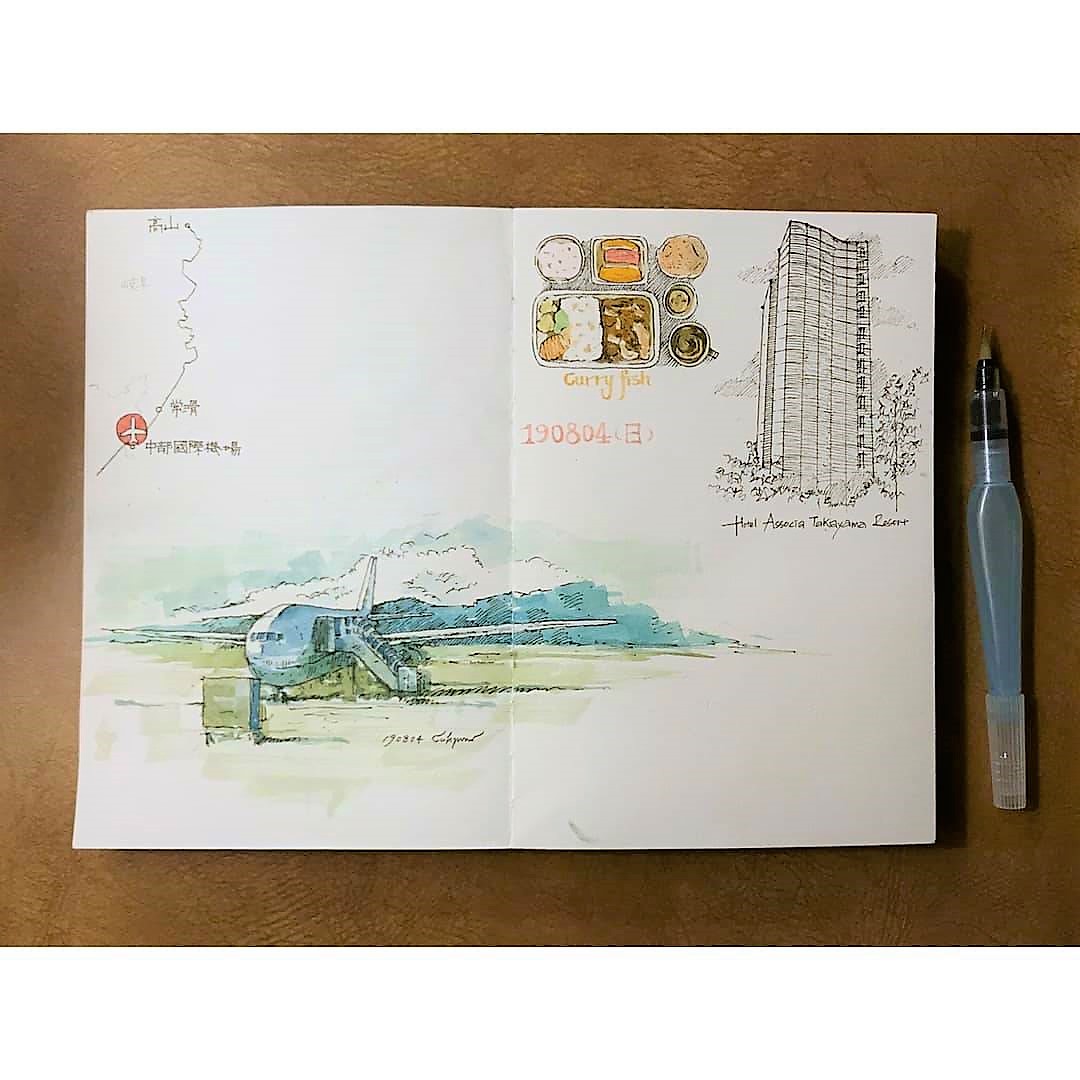 高山
岐阜
常滑
中部國際機場
190804
Curry fish
190804(日)
Hotel Associa Takayama Resort